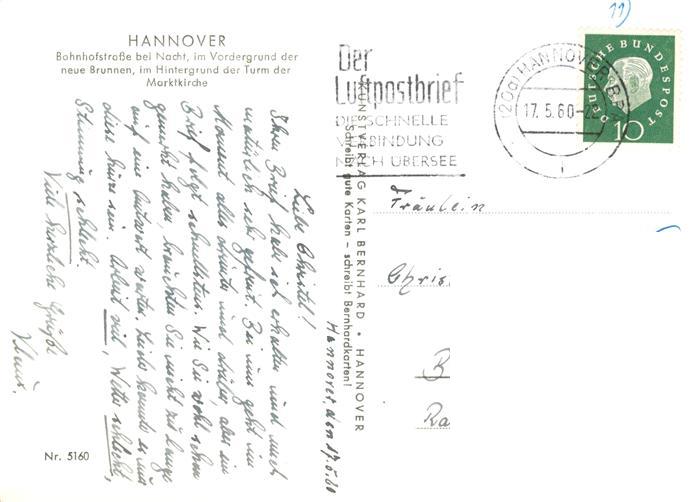 HANNOVER
Bahnhofstraße bei Nacht, im Vordergrund der
neue Brunnen, im Hintergrund der Turm der
Marktkirche
Hannover, den 17.5.60
Liebe Christel!
Ihren Brief habe ich erhalten und mich
natürlich sehr gefreut. Bei uns geht im
Moment alles drunter und drüber, aber ein
Brief folgt schnellstens. Wie Sie wohl schon
gemerkt haben, brauchten Sie nicht zu lange
auf eine Antwort warten. Leider konnte es nur
diese kurze sein. Arbeit viel, Wetter schlecht,
Stimmung schlecht.
Viele herzliche Grüße
Klaus.
Nr. 5160
KUNSTVERLAG KARL BERNHARD • HANNOVER
Schreibt gute Karten – schreibt Bernhardkarten!
Der
Luftpostbrief
DIE SCHNELLE
VERBINDUNG
NACH ÜBERSEE
(20a) HANNOVER BPA
17.5.60-22
DEUTSCHE BUNDESPOST
10
11)
Fräulein
Chris
B
Ra